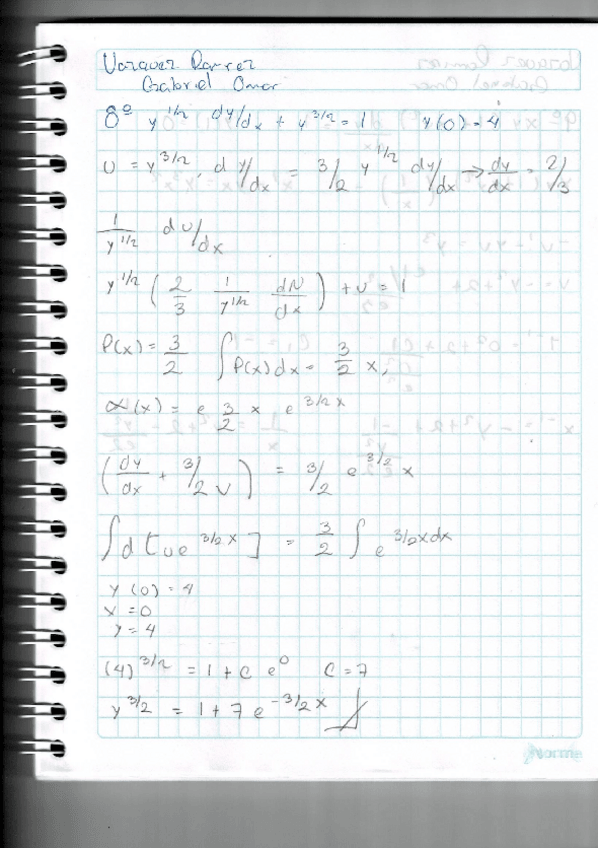 Vazquez Ramirez
Gabriel Omar
8º y^1/2 dy/dx + y^3/2 = 1 y(0) = 4
U = y^3/2, d y/dx = 3/2 y^1/2 dy/dx → dy/dx = 2/3
1/y^1/2 dU/dx
y^1/2 ( 2/3 1/y^1/2 dN/dx ) + U = 1
P(x) = 3/2 ∫ P(x) dx = 3/2 x,
∝(x) = e 3/2 x e^3/2 x
( dy/dx + 3/2 U ) = 3/2 e^3/2 x
∫ d [ u e^3/2 x ] = 3/2 ∫ e^3/2 x dx
y (0) = 4
x = 0
y = 4
(4)^3/2 = 1 + C e^0 C = 7
y^3/2 = 1 + 7 e^-3/2 x
norma